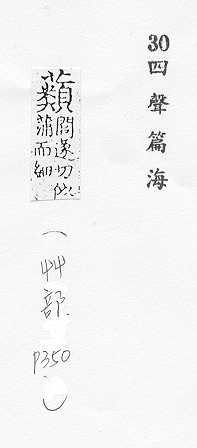 30四聲篇海
蘱閭遂切似
蒲而細
(艸部 P350)